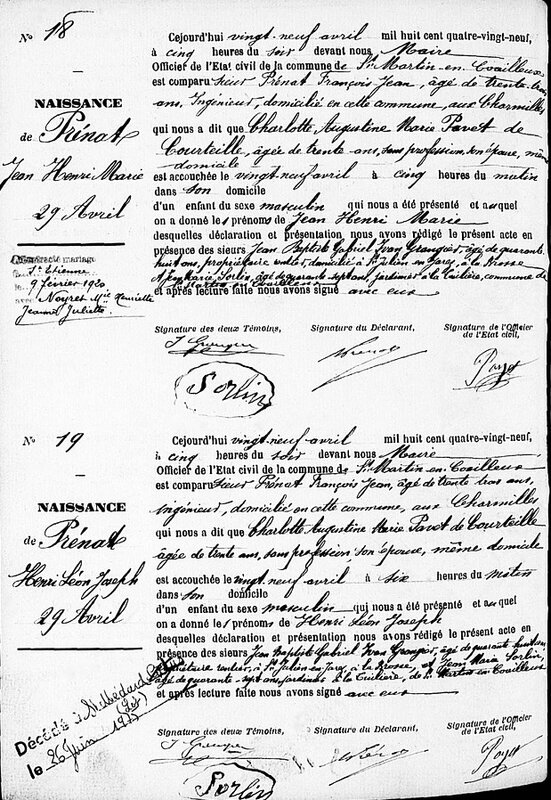 N° 18
NAISSANCE
de Prénat
Jean Henri Marie
29 Avril
mariage
St Etienne
le 9 février 1920
avec Noyret Mie Henriette
Jeanne Juliette
Cejourd'hui vingt-neuf avril mil huit cent quatre-vingt-neuf,
à cinq heures du soir devant nous Maire
Officier de l'Etat civil de la commune de St Martin-en-Coailleux
est comparu sieur Prénat François Jean, âgé de trente trois
ans, Ingénieur, domicilié en cette commune, aux Charmilles
qui nous a dit que Charlotte Augustine Marie Pavet de
Courteille, âgée de trente ans, sans profession, son épouse, même
domicile
est accouchée le vingt neuf avril à cinq heures du matin
dans son domicile
d'un enfant du sexe masculin qui nous a été présenté et auquel
on a donné les prénoms de Jean Henri Marie
desquelles déclaration et présentation nous avons rédigé le présent acte en
présence des sieurs Jean Baptiste Gabriel Yvan Grangier, âgé de quarante
huit ans, propriétaire rentier, domicilié à St Julien en Jarez, à la
et Jean Marie Sorlin, âgé de quarante sept ans, jardinier à la Cuitière, commune de
St Martin en Coailleux
et après lecture faite nous avons signé avec eux
Signature des deux Témoins,
Signature du Déclarant,
Signature de l'Officier
de l'Etat civil,
Sorlin
Prénat
Payet
N° 19
NAISSANCE
de Prénat
Henri Léon Joseph
29 Avril
Décédé à St Médard
(Lot)
le 26 Juin
Cejourd'hui vingt-neuf avril mil huit cent quatre-vingt-neuf,
à cinq heures du soir devant nous Maire
Officier de l'Etat civil de la commune de St Martin-en-Coailleux
est comparu sieur Prénat François Jean, âgé de trente trois ans,
ingénieur, domicilié en cette commune, aux Charmilles
qui nous a dit que Charlotte Augustine Marie Pavet de Courteille
âgée de trente ans, sans profession, son épouse, même domicile
est accouchée le vingt neuf avril à six heures du matin
dans son domicile
d'un enfant du sexe masculin qui nous a été présenté et auquel
on a donné les prénoms de Henri Léon Joseph
desquelles déclaration et présentation nous avons rédigé le présent acte en
présence des sieurs Jean Baptiste Gabriel Yvan Grangier, âgé de quarante huit ans,
propriétaire rentier, à St Julien en Jarez, à la et Jean Marie Sorlin,
âgé de quarante-sept ans, jardinier à la Cuitière, de St Martin en Coailleux
et après lecture faite nous avons signé avec eux
Signature des deux Témoins,
Signature du Déclarant,
Signature de l'Officier
de l'Etat civil,
Sorlin
Prénat
Payet